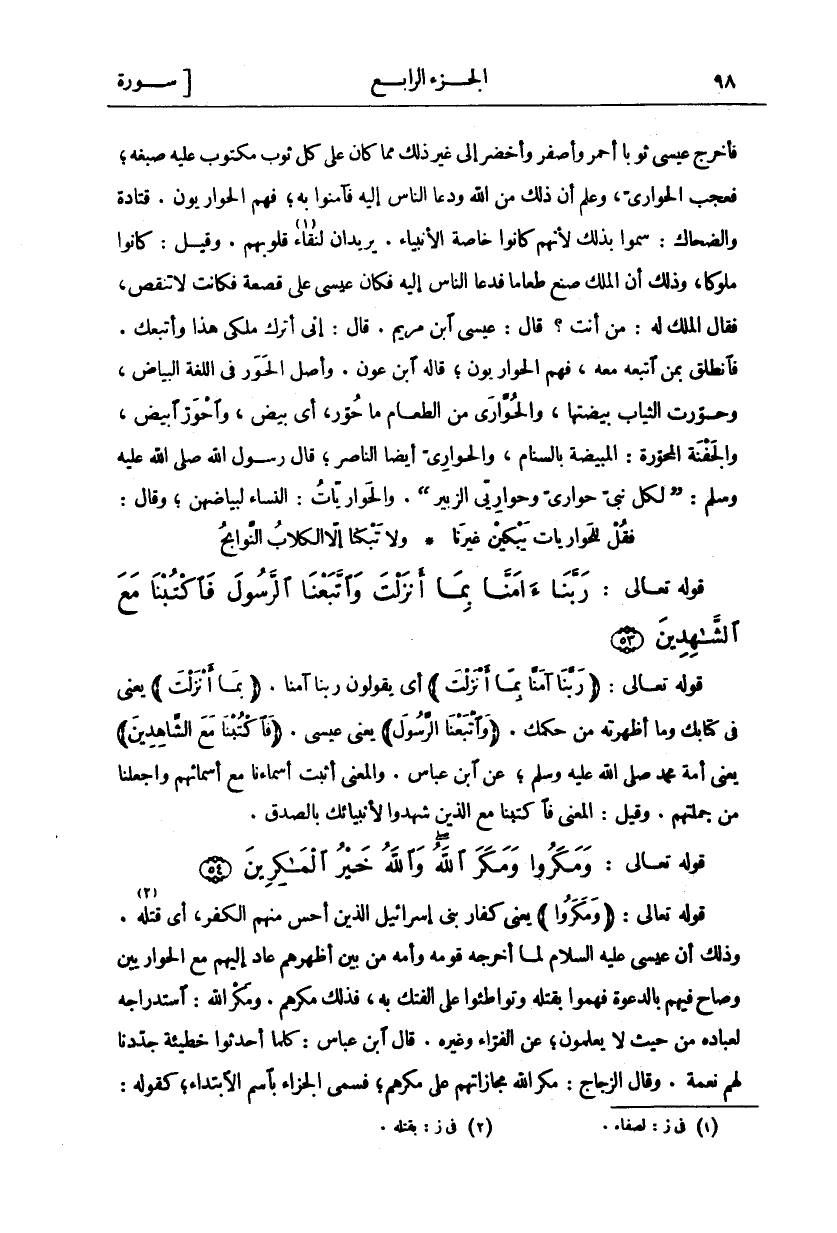 ٩٨ الجـــزء الرابـــع [ ســـورة
فأخرج عيسى ثوبا أحمر وأصفر وأخضر إلى غير ذلك مما كان على كل ثوب مكتوب عليه صبغه؛
فعجب الحوارىّ، وعلم أن ذلك من الله ودعا الناس إليه فآمنوا به؛ فهم الحواريون . قتادة
والضحاك : سموا بذلك لأنهم كانوا خاصة الأنبياء . يريدان لنقاء(١) قلوبهم . وقيـل : كانوا
ملوكا، وذلك أن الملك صنع طعاما فدعا الناس إليه فكان عيسى على قصعة فكانت لاتنقص،
فقال الملك له : من أنت ؟ قال : عيسى ٱبن مريم . قال : إنى أترك ملكى هذا وأتبعك .
فٱنطلق بمن ٱتبعه معه ، فهم الحواريون ؛ قاله ٱبن عون . وأصل الحَوَر فى اللغة البياض ،
وحـوّرت الثياب بيضتها ، والحُوَّارَى من الطعـام ما حُوّر، أى بيض ، وٱحْوَرّ ٱبيض ،
والجَفْنَة المحوّرة : المبيضة بالسنام ، والحـوارىّ أيضا الناصر ؛ قال رسـول الله صلى الله عليه
وسلم : ”لكل نبىّ حوارىّ وحواريّى الزبير“ . والحَواريّاتُ : النساء لبياضهن ؛ وقال :
فقُلْ للحَواريات يَبْكينَ غيرَنا * ولا تَبْكنا إلّا الكلابُ النَّوابحُ
قوله تعـالى : رَبَّنَآ ءَامَنَّـا بِمَـآ أَنزَلْتَ وَٱتَّبَعْنَا ٱلرَّسُولَ فَٱكْتُبْنَا مَعَ
ٱلشَّـٰهِدِينَ ٥٣
قوله تعـالى : ﴿ رَبَّنَا آمَنَّا بِمَـا أَنْزَلْتَ ﴾ أى يقولون ربنا آمنا . ﴿ بِمَـا أَنْزَلْتَ ﴾ يعنى
فى كتابك وما أظهرته من حكمك . ﴿وَٱتَّبَعْنَا الرَّسُولَ﴾ يعنى عيسى . ﴿فَٱكْتُبْنَا مَعَ الشَّاهِدِينَ﴾
يعنى أمة محمد صلى الله عليه وسلم ؛ عن ٱبن عباس . والمعنى أثبت أسماءنا مع أسمائهم واجعلنا
من جملتهم . وقيل : المعنى فٱكتبنا مع الذين شهدوا لأنبيائك بالصدق .
قوله تعـالى : وَمَكَرُوا وَمَكَرَ ٱللَّهُ وَٱللَّهُ خَيْرُ ٱلْمَـٰكِرِينَ ٥٤
قوله تعالى : ﴿ وَمَكَرُوا ﴾ يعنى كفار بنى إسرائيل الذين أحس منهم الكفر، أى قتله(٢) .
وذلك أن عيسى عليه السلام لمـا أخرجه قومه وأمه من بين أظهرهم عاد إليهم مع الحواريين
وصاح فيهم بالدعوة فهموا بقتله وتواطئوا على الفتك به ، فذلك مكرهم . ومكْر الله : ٱستدراجه
لعباده من حيث لا يعلمون؛ عن الفرّاء وغيره . قال ٱبن عباس : كلما أحدثوا خطيئة جدّدنا
لهم نعمة . وقال الزجاج : مكر الله مجازاتهم على مكرهم؛ فسمى الجزاء بٱسم الٱبتداء؛ كقوله :
(١) فى ز : لصفاء . (٢) فى ز : بقتله .